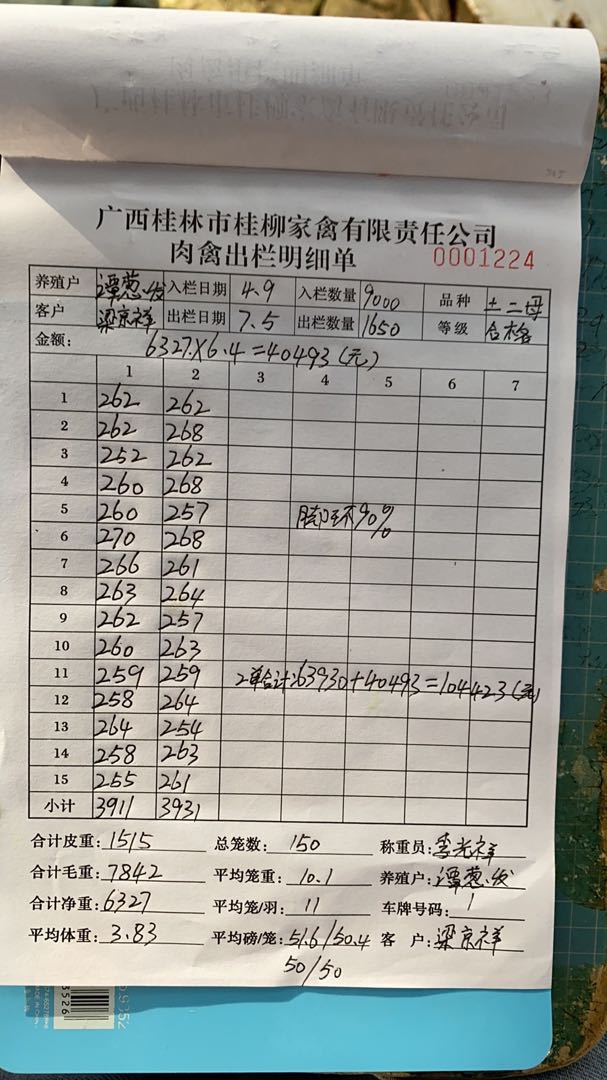 广西桂林市桂柳家禽有限责任公司
肉禽出栏明细单 0001224
养殖户 谭葱发 入栏日期 4.9 入栏数量 9000 品种 土二母
客户 梁京祥 出栏日期 7.5 出栏数量 1650 等级 合格
金额: 6327×6.4=40493(元)
1 2 3 4 5 6 7
1 262 262
2 262 268
3 252 262
4 260 268
5 260 257 90%
6 270 268
7 266 261
8 263 264
9 262 257
10 260 263
11 259 259 2单合计:63930+40493=104423(元)
12 258 264
13 264 254
14 258 263
15 255 261
小计 3911 3931
合计皮重: 1515 总笼数: 150 称重员: 李光祥
合计毛重: 7842 平均笼重: 10.1 养殖户: 谭葱发
合计净重: 6327 平均笼/羽: 11 车牌号码: 1
平均体重: 3.83 平均磅/笼: 51.6/50.4 客户: 梁京祥
50/50